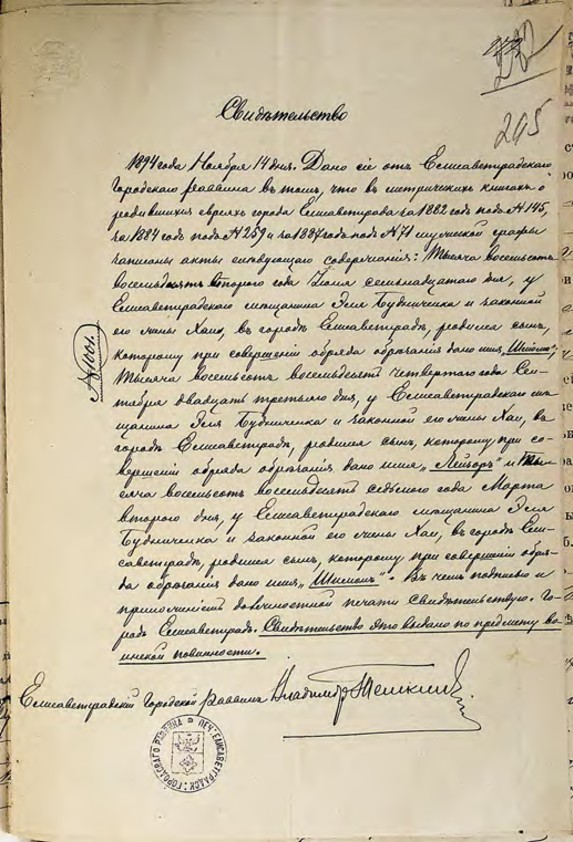 245
Свидѣтельство
1894 года Ноября 14 дня. Дано сіе отъ Елисаветградскаго
Городскаго Раввина въ томъ, что въ метрическихъ книгахъ о
родившихся евреяхъ города Елисаветграда за 1882 годъ подъ № 145,
за 1884 годъ подъ № 259 и за 1887 годъ подъ № 71 мужской графы
записаны акты слѣдующаго содержанія: Тысяча восемьсотъ
восемьдесятъ второго года Іюля семьнадцатаго дня, у
Елисаветградскаго мѣщанина Эля Будниченка и законной
его жены Хаи, въ городѣ Елисаветградѣ, родился сынъ,
которому при совершеніи обряда обрѣзанія дано имя
№ 1001.
Тысяча восемьсотъ восемьдесятъ четвертаго года Сен-
тября двадцать третьяго дня, у Елисаветградскаго мѣ-
щанина Эля Будниченка и законной его жены Хаи, въ
городѣ Елисаветградѣ, родился сынъ, которому при со-
вершеніи обряда обрѣзанія дано имя „Лейзоръ" и Ты-
сяча восемьсотъ восемьдесятъ седьмого года Марта
второго дня, у Елисаветградскаго мѣщанина Эля
Будниченка и законной его жены Хаи, въ городѣ Ели-
саветградѣ, родился сынъ, которому при совершеніи обря-
да обрѣзанія дано имя „Шимонъ". Въ чемъ подписью и
приложеніемъ должностной печати свидѣтельствую. Го-
родъ Елисаветградъ. Свидѣтельство это выдано по предмету во-
инской повинности.
Елисаветградскій Городской Раввинъ Владимір Темкин
ПЕЧ. ЕЛИСАВЕТГРАДСК. ГОРОДСКАГО РАВВИНА